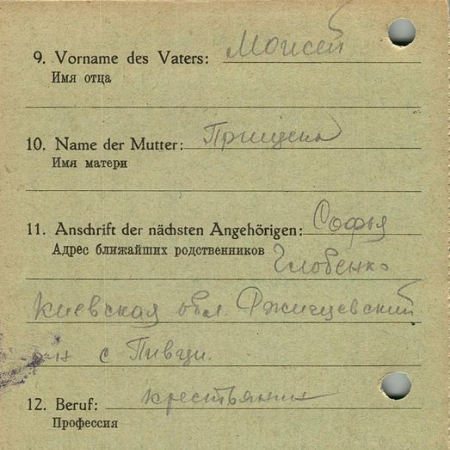 9. Vorname des Vaters: Моисей
Имя отца
10. Name der Mutter:
Имя матери
11. Anschrift der nächsten Angehörigen: Софья
Адрес ближайших родственников Глобенко
Киевская обл Ржищевский
с Пивци.
12. Beruf: крестьянин
Профессия